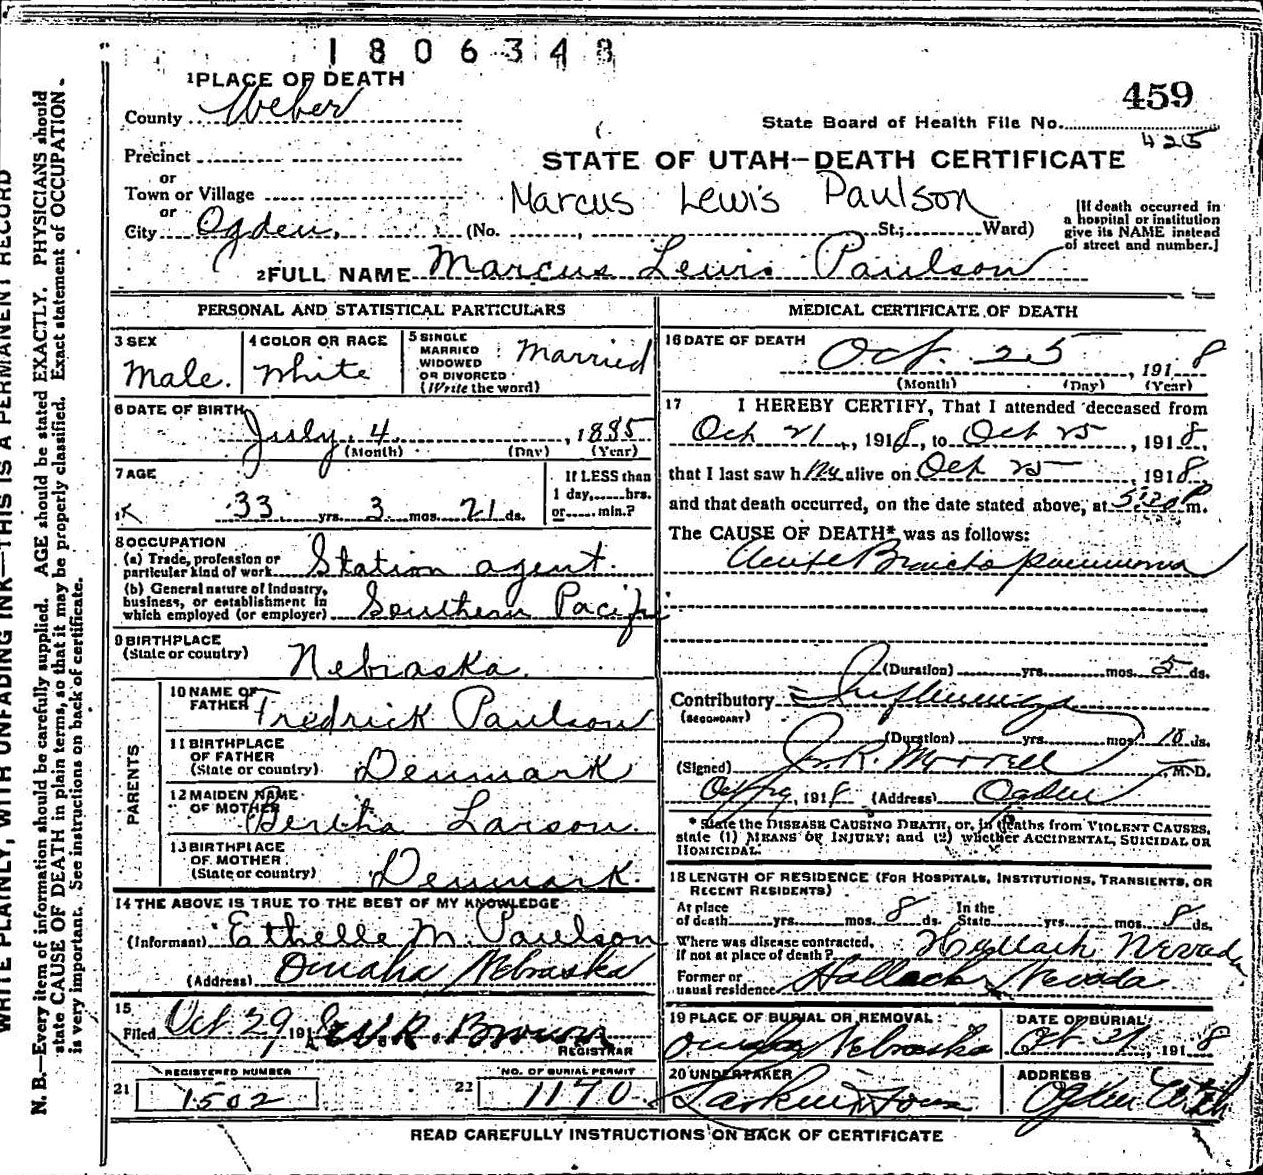 1806348
1 PLACE OF DEATH
County Weber
459
State Board of Health File No.
425
Precinct
or
Town or Village
or
City Ogden. (No. , St.; Ward)
STATE OF UTAH—DEATH CERTIFICATE
Marcus Lewis Paulson
[If death occurred in
a hospital or institution
give its NAME instead
of street and number.]
2 FULL NAME Marcus Lewis Paulson
PERSONAL AND STATISTICAL PARTICULARS
3 SEX
Male.
4 COLOR OR RACE
White
5 SINGLE
MARRIED
WIDOWED
OR DIVORCED
(Write the word)
Married
6 DATE OF BIRTH
July 4, 1885
(Month) (Day) (Year)
7 AGE
33 yrs. 3 mos. 21 ds.
If LESS than
1 day, hrs.
or min.?
8 OCCUPATION
(a) Trade, profession or
particular kind of work Station agent.
(b) General nature of industry,
business, or establishment in
which employed (or employer) Southern Pacific
9 BIRTHPLACE
(State or country) Nebraska.
PARENTS
10 NAME OF
FATHER Fredrick Paulson
11 BIRTHPLACE
OF FATHER
(State or country) Denmark
12 MAIDEN NAME
OF MOTHER Bertha Larson.
13 BIRTHPLACE
OF MOTHER
(State or country) Denmark.
14 THE ABOVE IS TRUE TO THE BEST OF MY KNOWLEDGE
(Informant) Ethelle M. Paulson
(Address) Omaha Nebraska
15
Filed Oct. 29, 191 Brown
REGISTRAR
REGISTERED NUMBER
21 1502
NO. OF BURIAL PERMIT
22 1170
MEDICAL CERTIFICATE OF DEATH
16 DATE OF DEATH
Oct. 25, 1918
(Month) (Day) (Year)
17 I HEREBY CERTIFY, That I attended deceased from
Oct 21, 1918, to Oct 25, 1918,
that I last saw him alive on Oct 25, 1918
and that death occurred, on the date stated above, at 5:20 P m.
The CAUSE OF DEATH* was as follows:
Acute Broncho pneumonia
(Duration) yrs. mos. 5 ds.
Contributory Influenza
(SECONDARY)
(Duration) yrs. mos. 10 ds.
(Signed) J. R. Morrell M. D.
Oct 29, 1918 (Address) Ogden
* State the DISEASE CAUSING DEATH, or, in deaths from VIOLENT CAUSES,
state (1) MEANS OF INJURY; and (2) whether ACCIDENTAL, SUICIDAL OR
HOMICIDAL.
18 LENGTH OF RESIDENCE (FOR HOSPITALS, INSTITUTIONS, TRANSIENTS, OR
RECENT RESIDENTS)
At place
of death yrs. mos. 8 ds. In the
State yrs. mos. 8 ds.
Where was disease contracted,
if not at place of death? Hallack Nevada
Former or
usual residence Halleck Nevada
19 PLACE OF BURIAL OR REMOVAL:
Omaha Nebraska
DATE OF BURIAL
Oct 27, 1918
20 UNDERTAKER
Larkin & Sons
ADDRESS
Ogden Utah
READ CAREFULLY INSTRUCTIONS ON BACK OF CERTIFICATE
WRITE PLAINLY, WITH UNFADING INK—THIS IS A PERMANENT RECORD
N. B.—Every item of information should be carefully supplied. AGE should be stated EXACTLY. PHYSICIANS should
state CAUSE OF DEATH in plain terms, so that it may be properly classified. Exact statement of OCCUPATION
is very important. See instructions on back of certificate.